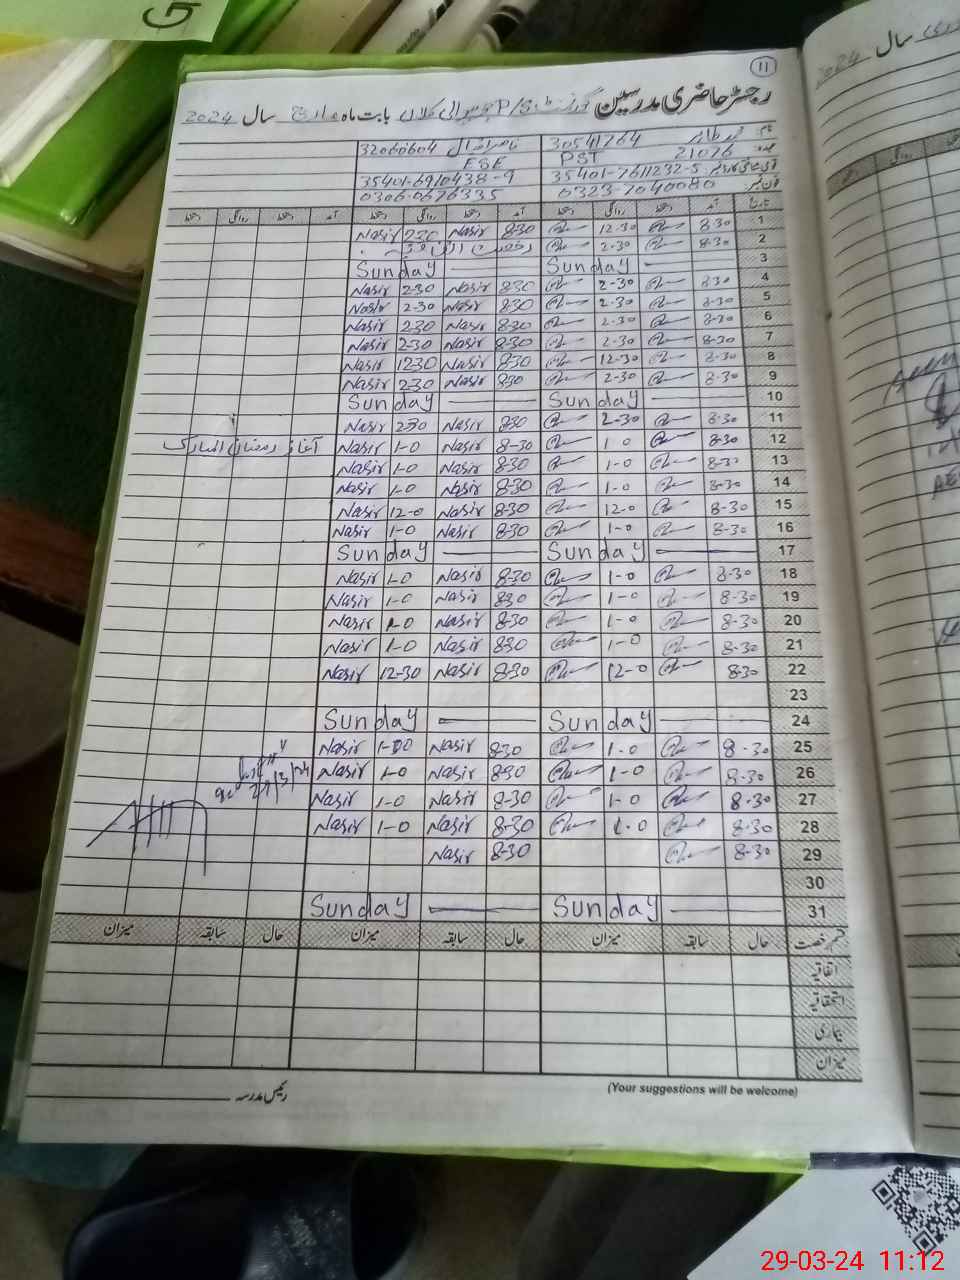 G
11
رجسٹر حاضری مدرسین گورنمنٹ P/S کلاں بابت ماہ مارچ سال 2024
نام: محمد طاہر 30541764 ناصر اقبال 32060604
عہدہ 21076 PST ESE
قومی شناختی کارڈ نمبر 35401-7611232-5 35401-6910438-9
فون نمبر 0323-7040080 0306-0676335
تاریخ آمد دستخط روانگی دستخط آمد دستخط روانگی دستخط آمد دستخط روانگی دستخط
1 8-30 12-30 8-30 Nasir 230 Nasir
2 8-30 2-30 رخصت
3 Sunday Sunday
4 8-30 2-30 8-30 Nasir 2-30 Nasir
5 8-30 2-30 8-30 Nasir 2-30 Nasir
6 8-30 2-30 8-30 Nasir 2-30 Nasir
7 8-30 2-30 8-30 Nasir 2-30 Nasir
8 8-30 12-30 8-30 Nasir 1230 Nasir
9 8-30 2-30 830 Nasir 2-30 Nasir
10 Sunday Sunday
11 8-30 2-30 830 Nasir 230 Nasir
12 8-30 1-0 8-30 Nasir 1-0 Nasir آغاز رمضان المبارک
13 8-30 1-0 8-30 Nasir 1-0 Nasir
14 8-30 1-0 8-30 Nasir 1-0 Nasir
15 8-30 12-0 8-30 Nasir 12-0 Nasir
16 8-30 1-0 8-30 Nasir 1-0 Nasir
17 Sunday Sunday
18 8-30 1-0 8-30 Nasir 1-0 Nasir
19 8-30 1-0 830 Nasir 1-0 Nasir
20 8-30 1-0 8-30 Nasir 1-0 Nasir
21 8-30 1-0 830 Nasir 1-0 Nasir
22 8-30 12-0 8-30 Nasir 12-30 Nasir
23
24 Sunday Sunday
25 8-30 1-0 8-30 Nasir 1-00 Nasir
26 8-30 1-0 8-30 Nasir 1-0 Nasir 29/3/24
27 8-30 1-0 8-30 Nasir 1-0 Nasir
28 8-30 1-0 8-30 Nasir 1-0 Nasir
29 8-30 8-30 Nasir
30
31 Sunday Sunday
قسم رخصت حال سابقہ میزان حال سابقہ میزان حال سابقہ میزان
اتفاقیہ
استحقاقیہ
بیماری
میزان
(Your suggestions will be welcome)
رئیس مدرسہ
سال 2024
29-03-24 11:12